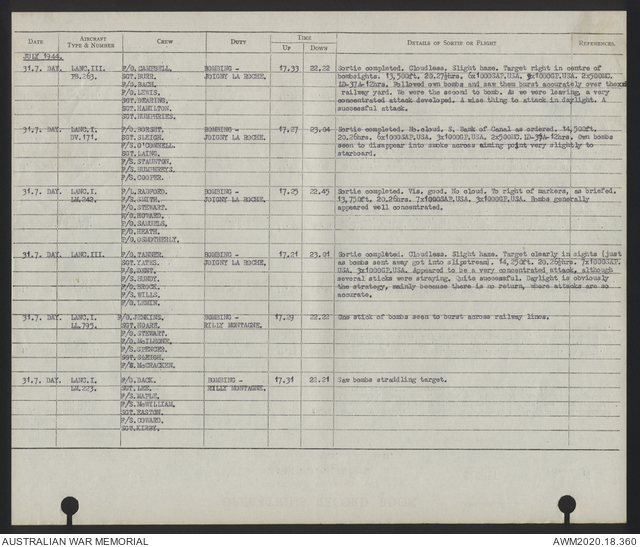 DATE AIRCRAFT TYPE & NUMBER CREW DUTY TIME Up Down DETAILS OF SORTIE OR FLIGHT REFERENCES.
JULY 1944.
31.7. DAY. LANC.III. P/O. CAMPBELL, BOMBING - 17.33 22.22 Sortie completed. Cloudless. Slight haze. Target right in centre of
PB.263. SGT. BURR, JOIGNY LA ROCHE. bombsights. 13,500ft. 20.27½hrs. 6x1000AP.USA. 9x1000GP.USA. 2x500MC.
F/O. BACH, LD-37A-12hrs. Followed own bombs and saw them burst accurately over the
P/O. LEWIS, railway yard. We were the second to bomb. As we were leaving, a very
SGT. DEARING, concentrated attack developed. A wise thing to attack in daylight. A
SGT. HAMILTON, successful attack.
SGT. HUMPHRIES.
31.7. DAY. LANC.I. BOMBING - 17.27 23.04 Sortie completed. No cloud. S. Bank of Canal as ordered. 14,500ft.
DV.171. SGT. SLEIGH, JOIGNY LA ROCHE. 20.26hrs. 6x1000AP.USA. 3x1000GP.USA. 2x500MC.LD-37A-12hrs. Own bombs
F/S. O'CONNELL. seen to disappear into smoke across aiming point very slightly to
SGT. LAING, starboard.
F/S. STAUNTON,
F/S. HUMPHREYS,
F/S. COOPER.
31.7. DAY. LANC.I. F/L. RADFORD, BOMBING - 17.25 22.45 Sortie completed. Vis. good. No cloud. To right of markers, as briefed.
LM.242. F/S. SMITH, JOIGNY LA ROCHE. 13,750ft. 20.26hrs. 7x1000GAP.USA. 3x1000GP.USA. Bombs generally
F/O. STEWART. appeared well concentrated.
F/O. HOWARD,
F/O. SAMUELS,
F/O. HEATH,
F/O. OSMOTHERLY.
31.7. DAY. LANC.III. F/O. TANNER, BOMBING - 17.21 23.01 Sortie completed. Cloudless. Slight haze. Target clearly in sights (just
SGT. YATES, JOIGNY LA ROCHE. as bombs sent away got into slipstream). 14,250ft. 20.26½hrs. 7x1000GAP.
F/S. HUNT, USA. 3x1000GP.USA. Appeared to be a very concentrated attack, although
F/S. HENDY, several sticks were straying. Quite successful. Daylight is obviously
F/S. BROCK, the strategy, mainly because there is no return, where attacks are so
F/S. WILLS, accurate.
F/O. LEWIN.
31.7. DAY. LANC.I. F/O. JENKINS, BOMBING - 17.29 22.22 One stick of bombs seen to burst across railway lines.
LL.795. SGT. HOARE, RILLY MONTAGNE.
F/O. STEWART.
F/O. McILRONE,
F/S. SPENCER.
SGT. SLEIGH.
F/S. McCRACKEN.
31.7. DAY. LANC.I. F/O. DACK. BOMBING - 17.31 22.21 Saw bombs straddling target.
LM.223. SGT. LEE. RILLY MONTAGNE.
F/S. MAPLE,
F/S. McWILLIAM,
SGT. EASTON.
F/S. COWARD.
SGT. KIRBY.
AUSTRALIAN WAR MEMORIAL AWM2020.18.360